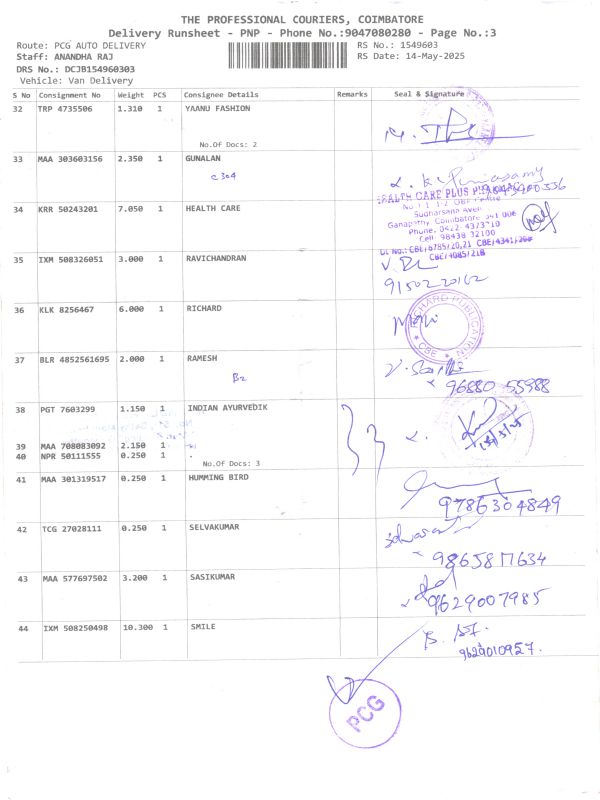 THE PROFESSIONAL COURIERS, COIMBATORE
Delivery Runsheet - PNP - Phone No.:9047080280 - Page No.:3
Route: PCG AUTO DELIVERY RS No.: 1549603
Staff: ANANDHA RAJ RS Date: 14-May-2025
DRS No.: DCJB154960303
Vehicle: Van Delivery
S No Consignment No Weight PCS Consignee Details Remarks Seal & Signature
32 TRP 4735506 1.310 1 YAANU FASHION
No.Of Docs: 2
33 MAA 303603156 2.350 1 GUNALAN
C304
HEALTH CARE PLUS PHARMACY
34 KRR 50243201 7.050 1 HEALTH CARE
Sudharsana Aven
Ganapathy, Coimbatore 641 006
Phone: 0422 4373710
Cell: 98438 32100
DL No.: CBE/6785/20,21 CBE/4341/20B
CBE/4085/21B
35 IXM 508326051 3.000 1 RAVICHANDRAN
9150220162
36 KLK 8256467 6.000 1 RICHARD
Mani
RICHARD PUBLICATION
CBE
37 BLR 4852561695 2.000 1 RAMESH
B2
96880 55988
38 PGT 7603299 1.150 1 INDIAN AYURVEDIK
39 MAA 708083092 2.150 1 .
40 NPR 50111555 0.250 1 .
No.Of Docs: 3
41 MAA 301319517 0.250 1 HUMMING BIRD
9786304849
42 TCG 27028111 0.250 1 SELVAKUMAR
9865817634
43 MAA 577697502 3.200 1 SASIKUMAR
9629007985
44 IXM 508250498 10.300 1 SMILE
9629010957.
PCG